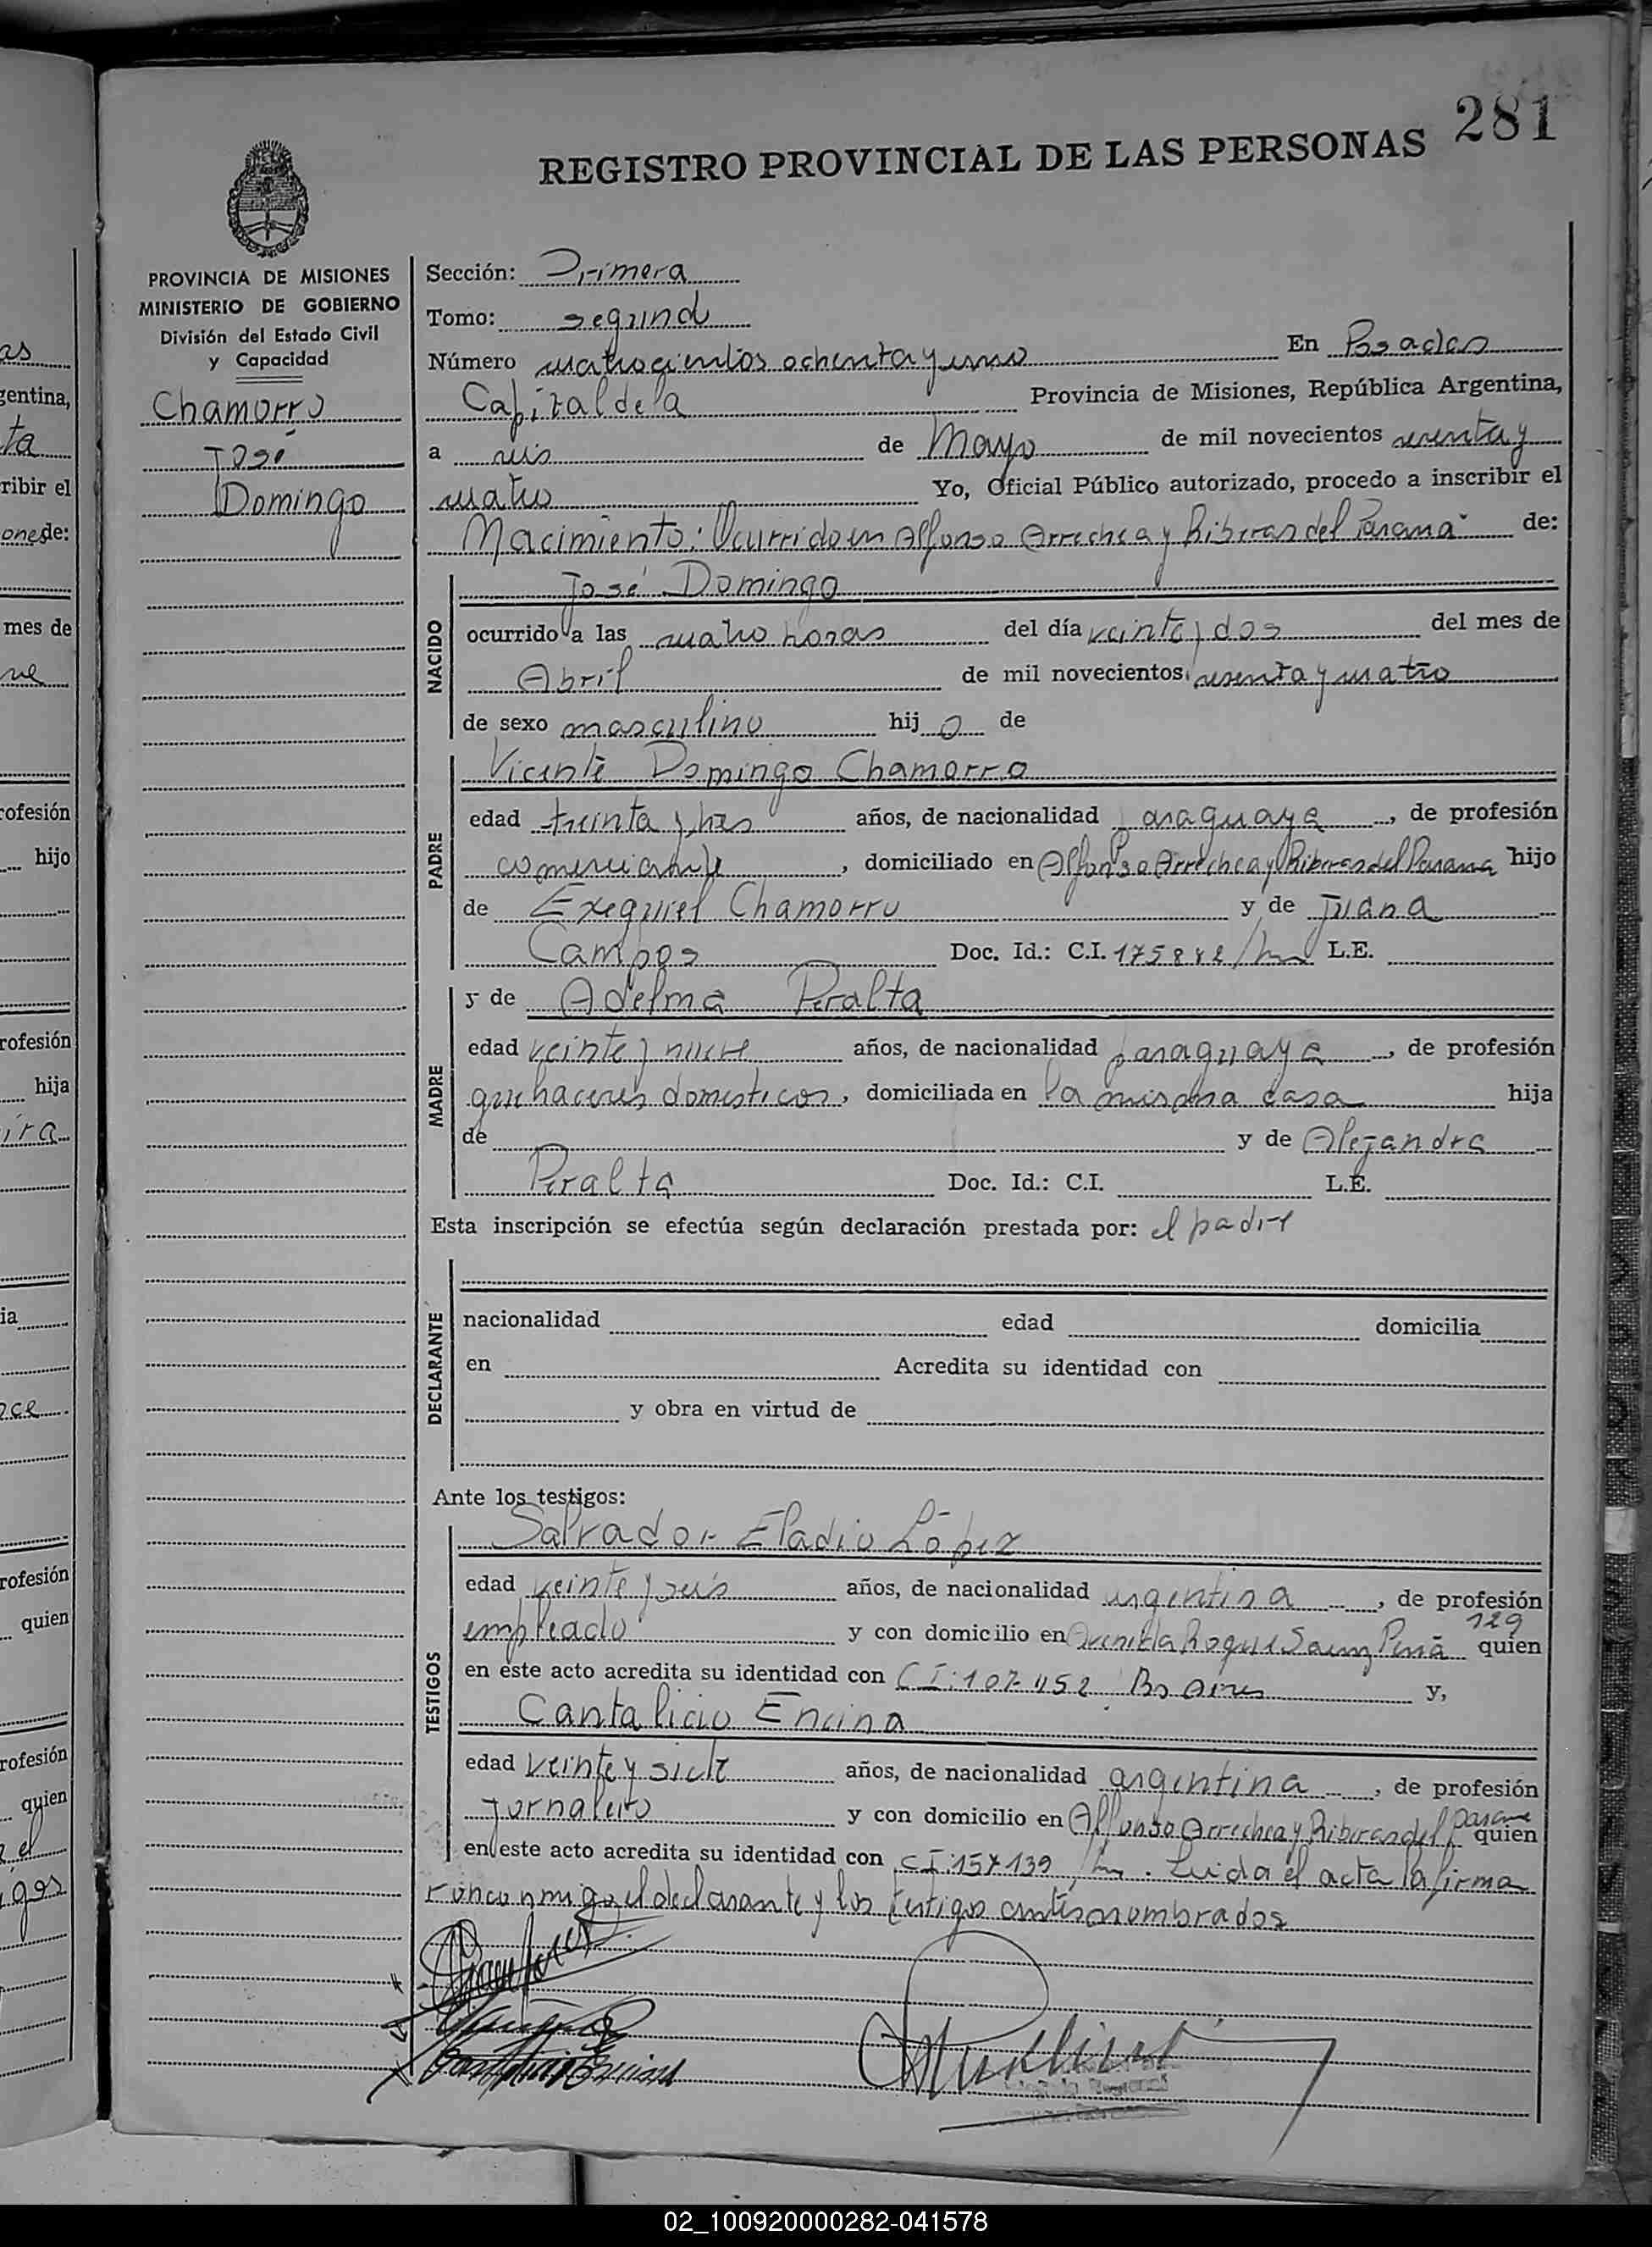 281
REGISTRO PROVINCIAL DE LAS PERSONAS
PROVINCIA DE MISIONES
MINISTERIO DE GOBIERNO
División del Estado Civil
y Capacidad
Chamorro
José
Domingo
Sección: Primera
Tomo: segund
Número cuatrocientos ochenta y uno En Posadas
Capital de la Provincia de Misiones, República Argentina,
a seis de Mayo de mil novecientos sesenta y
cuatro Yo, Oficial Público autorizado, procedo a inscribir el
Nacimiento: Ocurrido en Alfonso Arrechea y Riberas del Paraná de:
NACIDO
José Domingo
ocurrido a las cuatro horas del día veinte y dos del mes de
Abril de mil novecientos sesenta y cuatro
de sexo masculino hij o de
PADRE
Vicente Domingo Chamorro
edad treinta y tres años, de nacionalidad paraguaya, de profesión
comerciante, domiciliado en Alfonso Arrechea y Riberas del Parana hijo
de Exequiel Chamorro y de Juana
Campos Doc. Id.: C.I. L.E.
MADRE
y de Adelma Peralta
edad veinte y nueve años, de nacionalidad paraguaya, de profesión
quehaceres domesticos, domiciliada en la misma casa hija
de y de Alejandra
Peralta Doc. Id.: C.I. L.E.
Esta inscripción se efectúa según declaración prestada por: el padre
DECLARANTE
nacionalidad edad domicilia
en Acredita su identidad con
y obra en virtud de
Ante los testigos:
TESTIGOS
Salvador Eladio López
edad veinte y seis años, de nacionalidad argentina, de profesión
empleado y con domicilio en Avenida Roque Saenz Peña 129 quien
en este acto acredita su identidad con CI: Bs Aires y,
Cantalicio Encina
edad veinte y siete años, de nacionalidad argentina, de profesión
jornalero y con domicilio en Alfonso Arrechea y Riberas del Parana quien
en este acto acredita su identidad con CI: 157139 . Leida el acta la firma
ron conmigo el declarante y los testigos antes nombrados
as
gentina,
ta
ribir el
onesde:
mes de
ve
rofesión
hijo
rofesión
hija
ira
ia
oce
rofesión
quien
rofesión
quien
el
gos
02_100920000282-041578